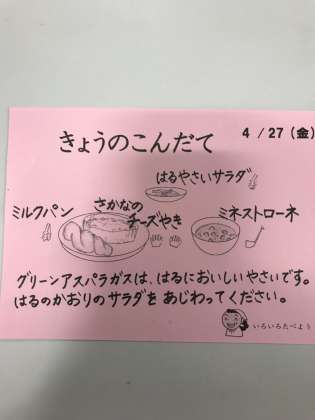 4 / 27 (金)
きょうのこんだて
はるやさいサラダ
ミルクパン
さかなの
チーズやき
ミネストローネ
グリーンアスパラガスは、はるにおいしいやさいです。
はるのかおりのサラダをあじわってください。
いろいろたべよう